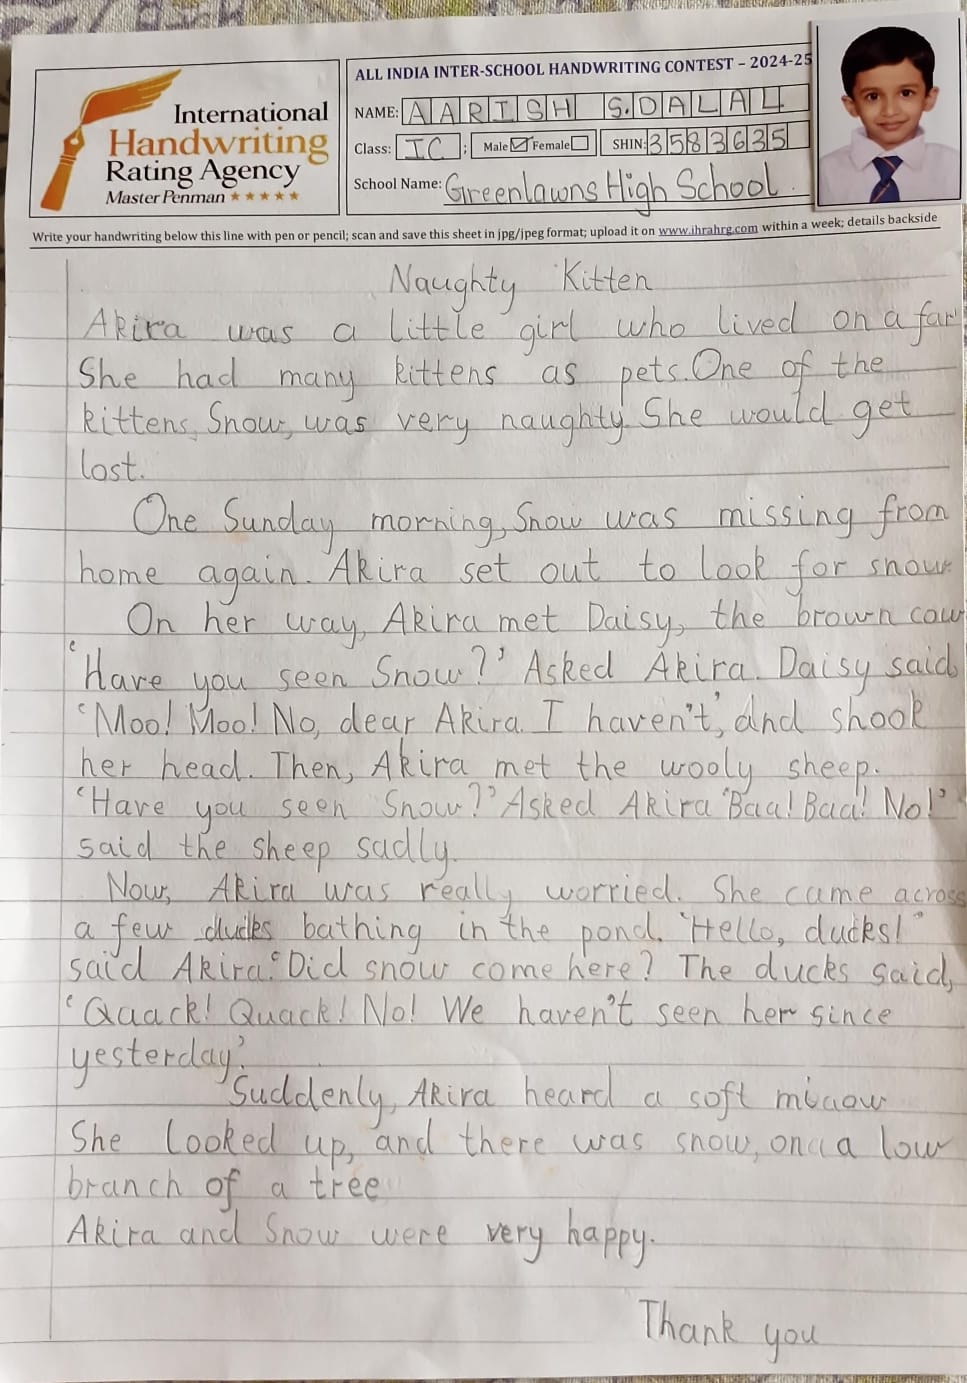 International
Handwriting
Rating Agency
Master Penman ★★★★★
ALL INDIA INTER-SCHOOL HANDWRITING CONTEST – 2024-25
NAME: AARISH S. DALAL
Class: IC ; Male Female SHIN: 3583635
School Name: Greenlawns High School.
Write your handwriting below this line with pen or pencil; scan and save this sheet in jpg/jpeg format; upload it on www.ihrahrg.com within a week; details backside
Naughty Kitten
Akira was a little girl who lived on a far
She had many kittens as pets. One of the
kittens, Snow, was very naughty. She would get
lost.
One Sunday morning, Snow was missing from
home again. Akira set out to look for snow
On her way, Akira met Daisy, the brown cow
'Have you seen Snow?' Asked Akira. Daisy said
'Moo! Moo! No, dear Akira. I haven't', and shook
her head. Then, Akira met the wooly sheep.
'Have you seen Snow?' Asked Akira 'Baa! Baa! No!'
said the sheep sadly.
Now, Akira was really worried. She came across
a few ducks bathing in the pond. "Hello, ducks!"
said Akira. 'Did snow come here? The ducks said,
'Quack! Quack! No! We haven't seen her since
yesterday'.
Suddenly, Akira heard a soft miaow
She looked up, and there was snow, on a low
branch of a tree
Akira and Snow were very happy.
Thank you